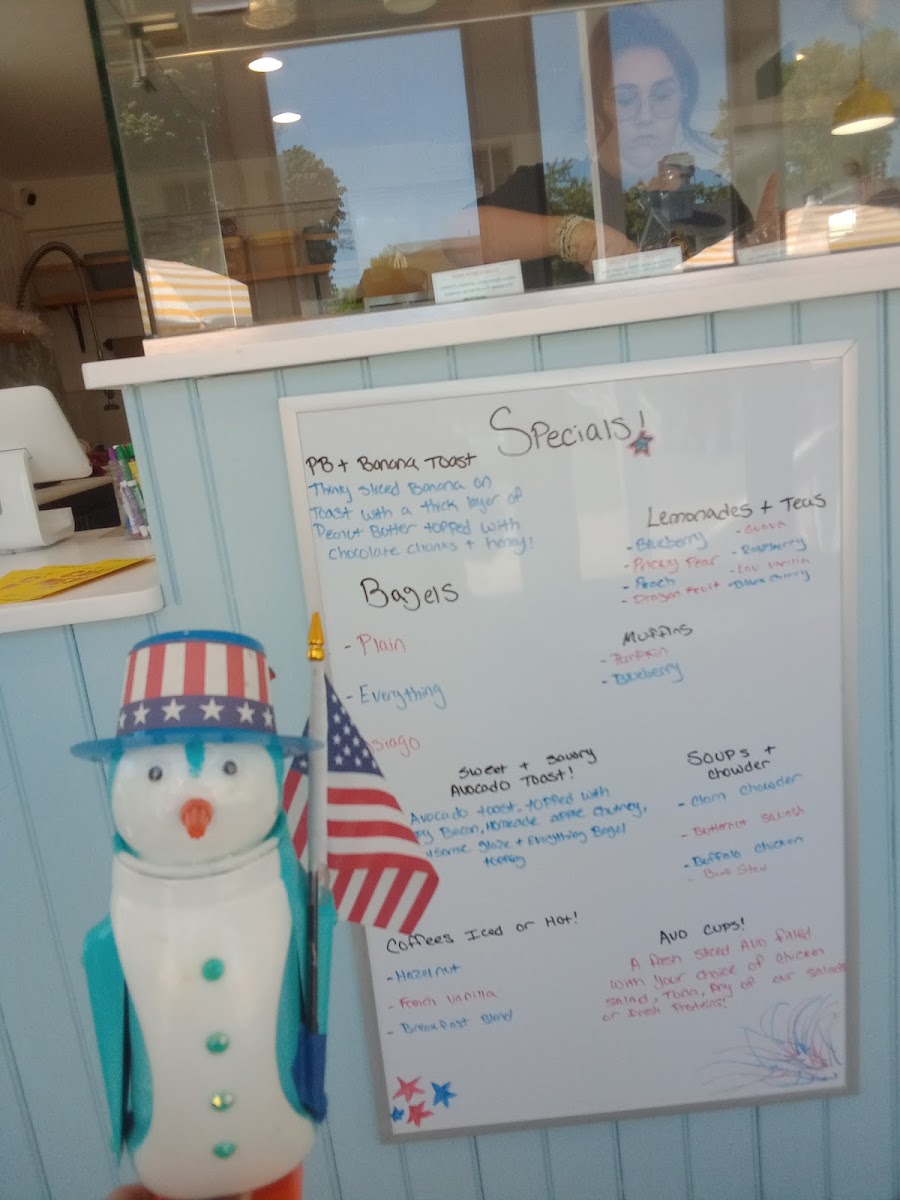 Specials!
PB + Banana Toast
Thinly sliced Banana on
Toast with a thick layer of
Peanut Butter topped with
chocolate chunks + honey!
Lemonades + Teas
- Blueberry
- Guava
- Prickly Pear
- Raspberry
- Peach
- Low Vanilla
- Dragon Fruit
- Black Cherry
Bagels
- Plain
- Everything
siago
Muffins
- Pumpkin
- Blueberry
Sweet + Savory
Avocado Toast!
Avocado toast, topped with
Bacon, Homemade apple chutney,
glaze + Everything Bagel
Soups +
chowder
- Clam chowder
- Butternut Squash
- Buffalo chicken
- Beef Stew
Coffees Iced or Hot!
- Hazelnut
- French Vanilla
- Breakfast Blend
Avo Cups!
A fresh sliced Avo filled
with your choice of chicken
salad, Tuna, Any of our salads
or fresh Proteins!